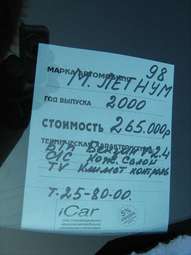 98
МАРКА АВТОМОБИЛЯ
М. ЛЕГНУМ
ГОД ВЫПУСКА 2000
СТОИМОСТЬ 265.000р
ТЕХНИЧЕСКАЯ ХАРАКТЕРИСТИКА
Б/П Бензин V-2.4
С/С Кож. Салон
TV Климат контроль
Т-25-80-00.
iCar